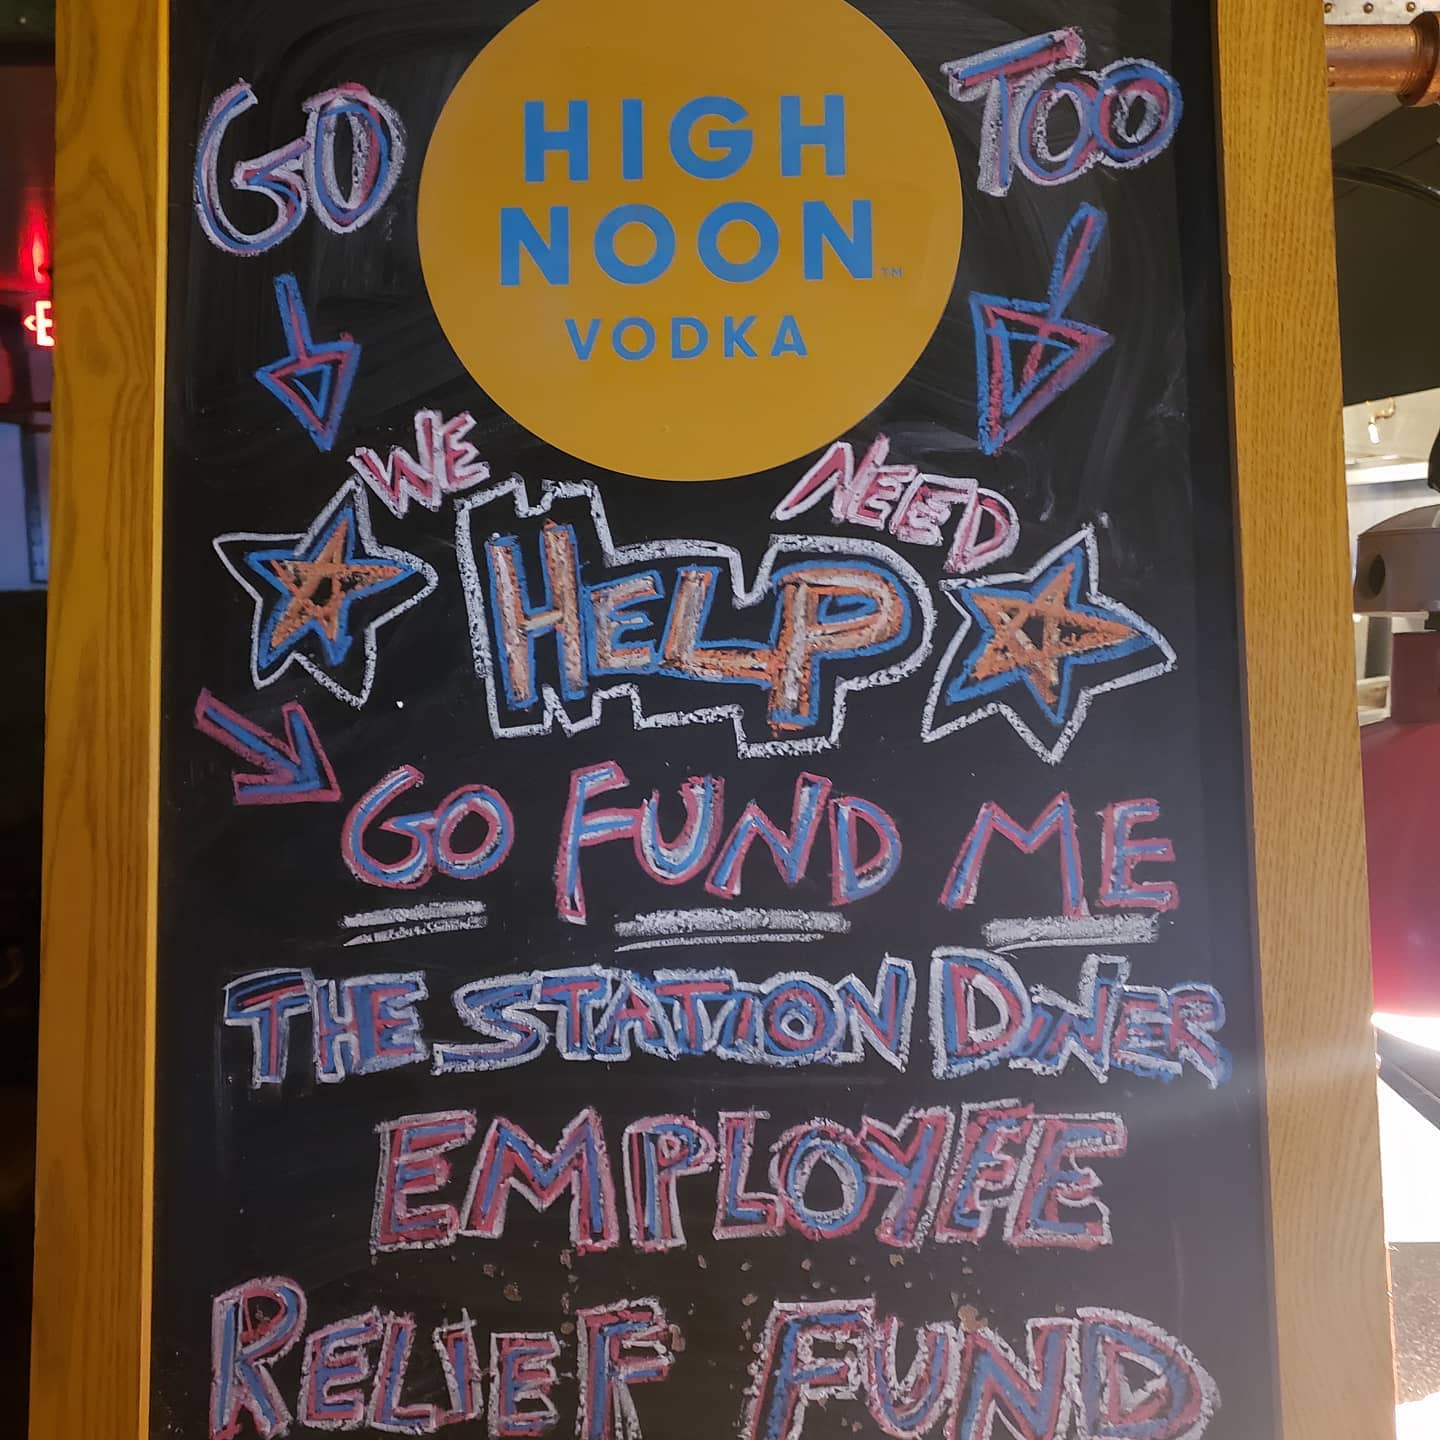 GO TOO
HIGH
NOON™
VODKA
WE NEED
HELP
GO FUND ME
THE STATION DINER
EMPLOYEE
RELIEF FUND